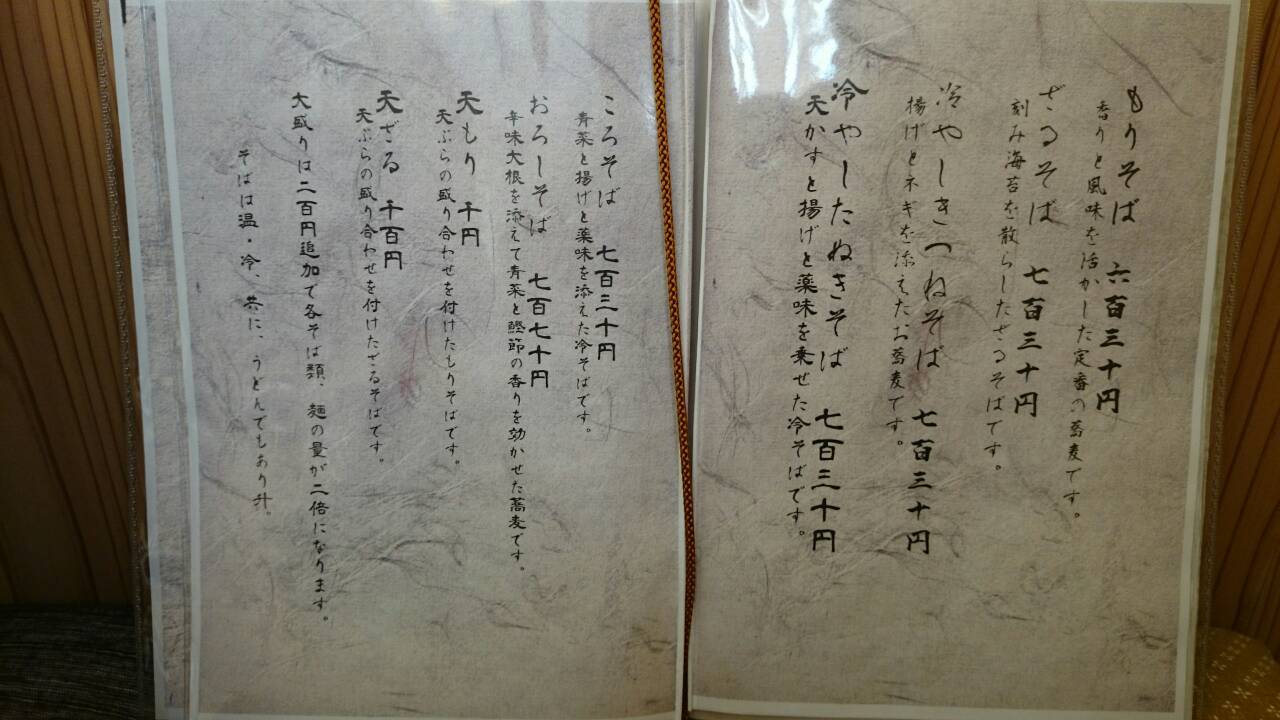 もりそば 六百三十円
香りと風味を活かした定番の蕎麦です。
ざるそば 七百三十円
刻み海苔を散らしたざるそばです。
冷やしきつねそば 七百三十円
揚げとネギを添えたお蕎麦です。
冷やしたぬきそば 七百三十円
天かすと揚げと薬味を乗せた冷そばです。
ころそば 七百三十円
青菜と揚げと薬味を添えた冷そばです。
おろしそば 七百七十円
辛味大根を添えて青菜と鰹節の香りを効かせた蕎麦です。
天もり 千円
天ぷらの盛り合わせを付けたもりそばです。
天ざる 千百円
天ぷらの盛り合わせを付けたざるそばです。
大盛りは二百円追加で各そば類、麺の量が二倍になります。
そばは温・冷、共に、うどんでもあり升。